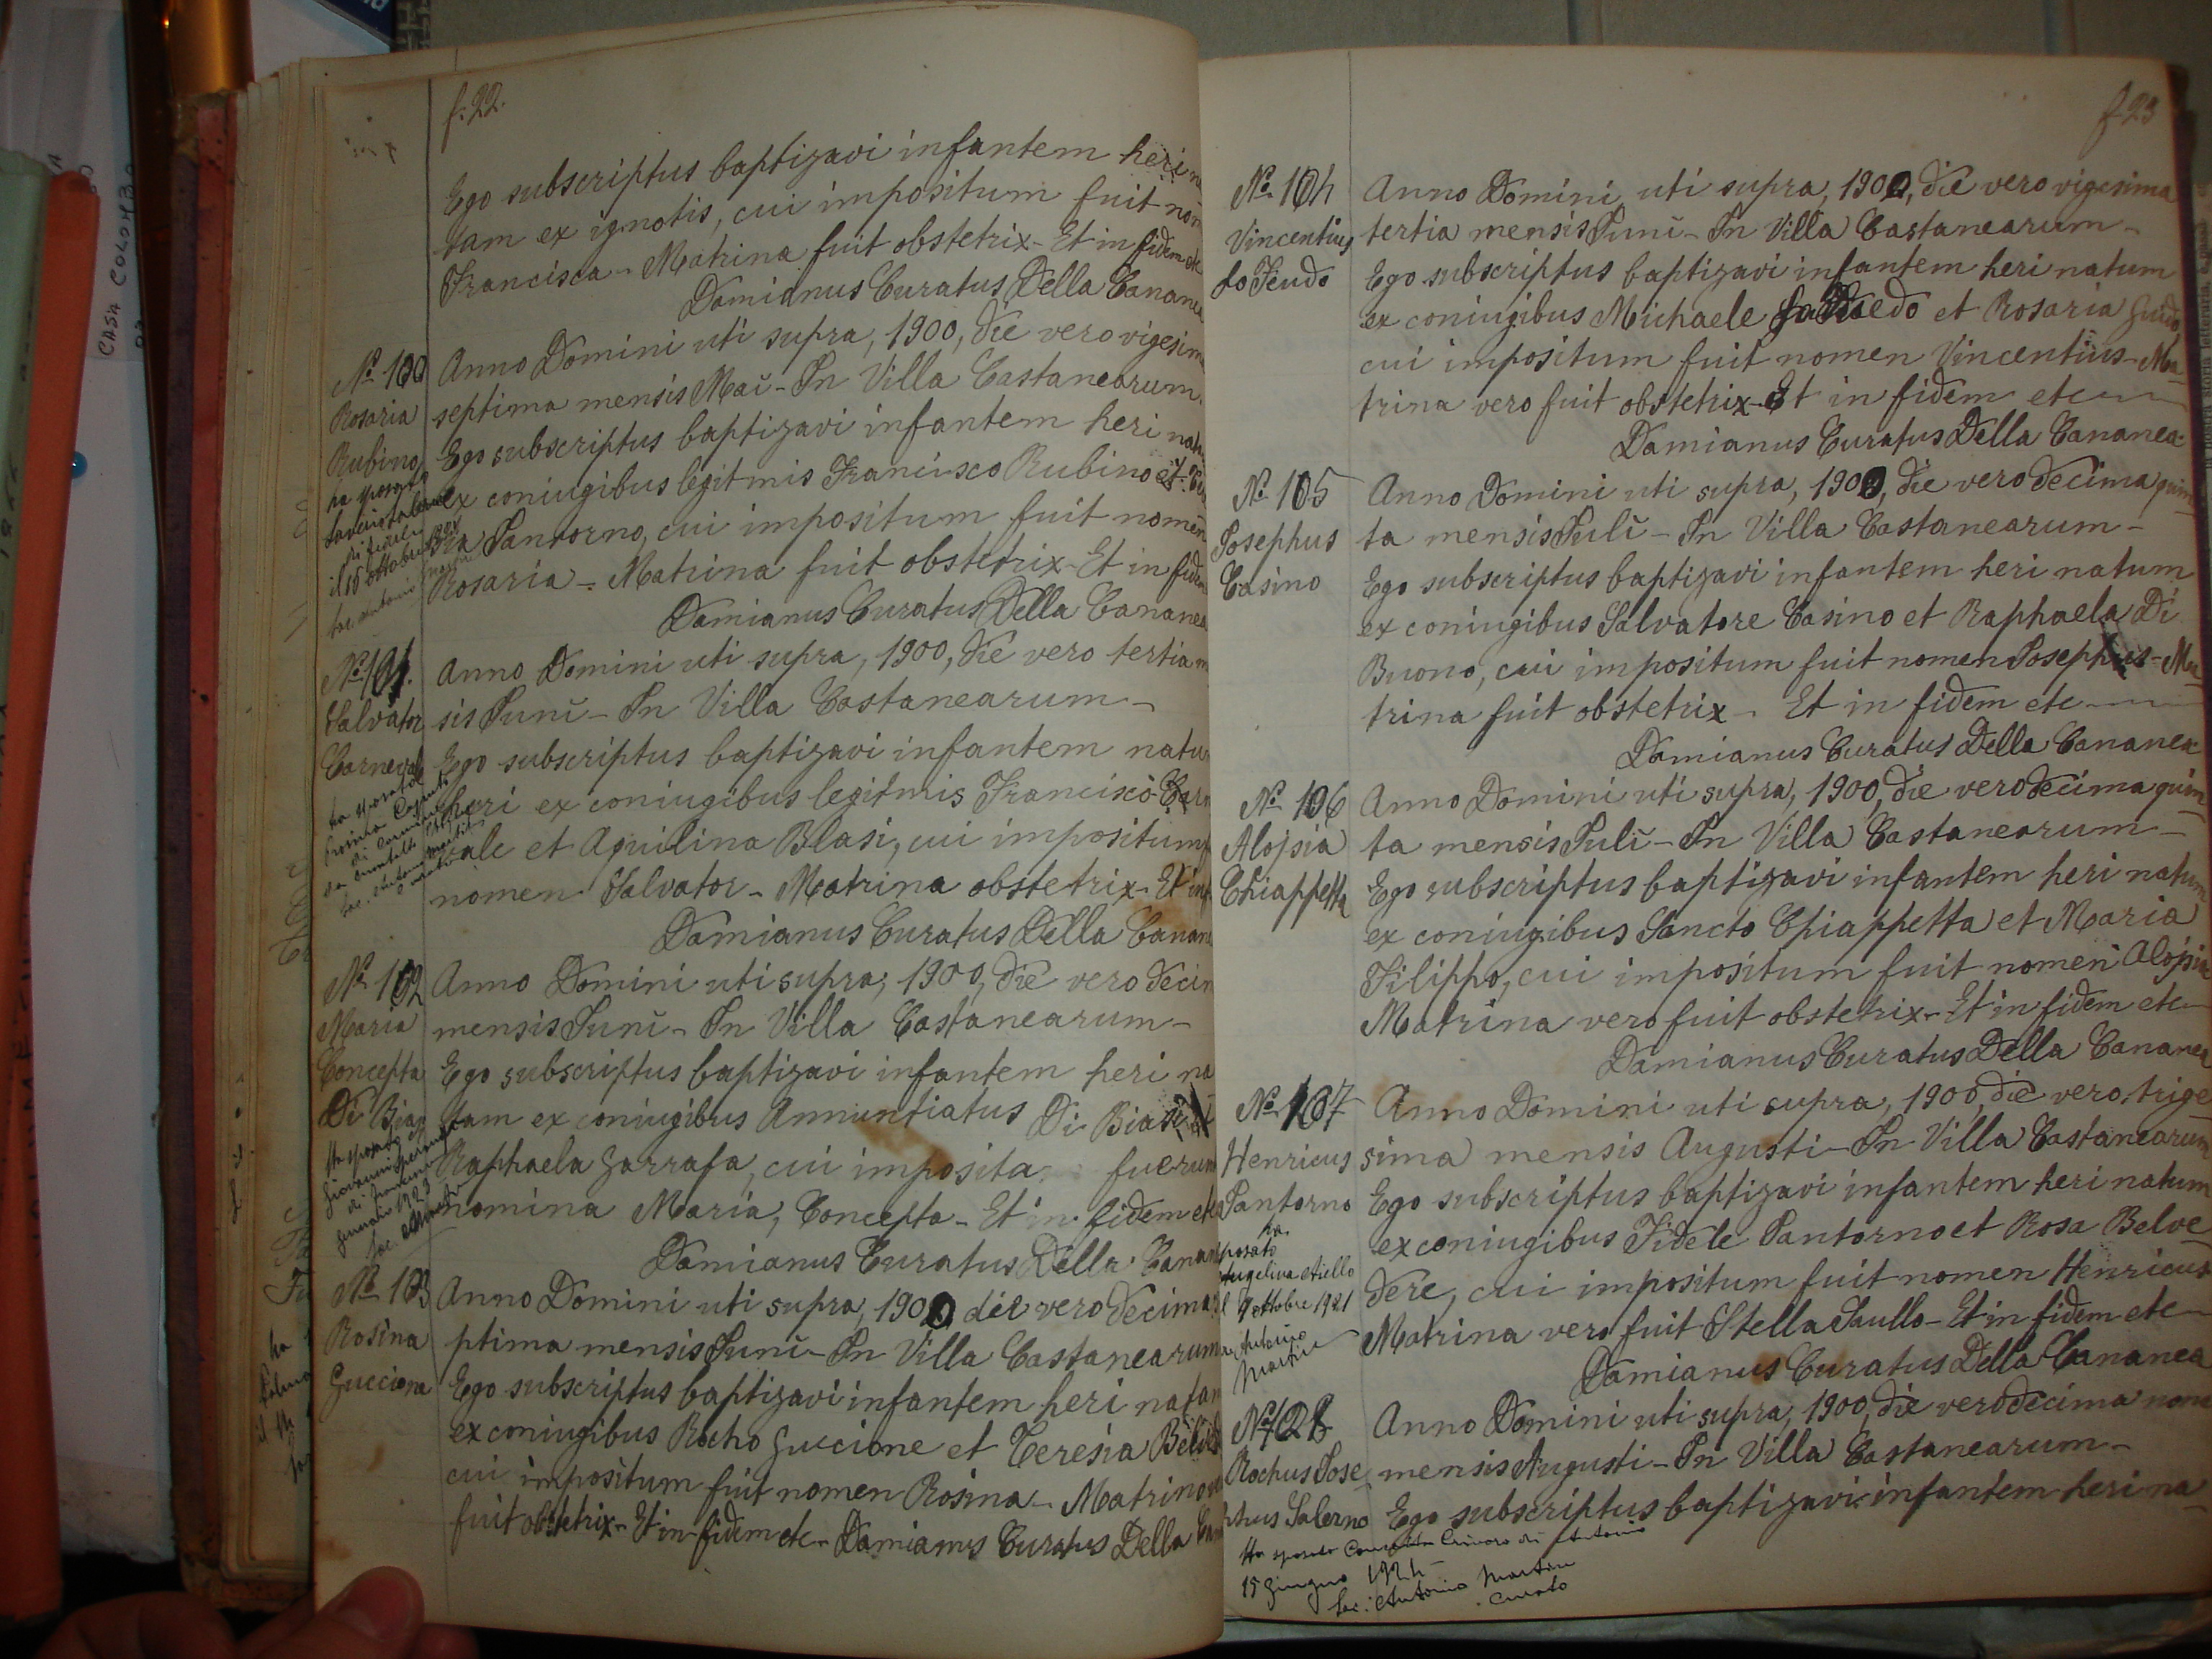 f. 22.
Ego subscriptus baptizavi infantem heri
tam ex ignotis, cui impositum fuit nom
Francisca - Matrina fuit obstetrix - Et in fidem etc
Damianus Curatus Della Cananea
Nº 100
Rosaria
Rubino
ha sposato
il 15 ottobre
Anno Domini uti supra, 1900, die vero vigesima
septima mensis Maii - In Villa Castanearum.
Ego subscriptus baptizavi infantem heri natam
ex coniugibus legitmis Francisco Rubino et
Santorno, cui impositum fuit nomen
Rosaria - Matrina fuit obstetrix - Et in fidem
Damianus Curatus Della Cananea
Nº 101.
Salvator
Carnevale
ha sposato
Anno Domini uti supra, 1900, die vero tertia m
sis Junii - In Villa Castanearum -
Ego subscriptus baptizavi infantem natum
heri ex coniugibus legitmis Francisco Carn
vale et Aquilina Blasi, cui impositum f
nomen Salvator - Matrina obstetrix - Et in f
Damianus Curatus Della Canan
Nº 102
Maria
Concepta
Di Biase
Ha sposato
Giovanni
1923
Anno Domini uti supra, 1900, die vero decim
mensis Junii - In Villa Castanearum -
Ego subscriptus baptizavi infantem heri na
tam ex coniugibus Annuntiatus Di Biase et
Raphaela Garrafa, cui imposita fuerun
nomina Maria, Concepta - Et in fidem etc
Damianus Curatus Della Canan
Nº 103
Rosina
Guccione
Anno Domini uti supra, 1900, die vero decima se
ptima mensis Junii - In Villa Castanearum
Ego subscriptus baptizavi infantem heri natam
ex coniugibus Rocho Guccione et Teresia
cui impositum fuit nomen Rosina - Matrina
fuit obstetrix - Et in fidem etc - Damianus Curatus Della Can
f 23
Nº 104
Vincentius
Lo Feudo
Anno Domini uti supra, 1900, die vero vigesima
tertia mensis Junii - In Villa Castanearum -
Ego subscriptus baptizavi infantem heri natum
ex coniugibus Michaele et Rosaria Guido
cui impositum fuit nomen Vincentius - Ma-
trina vero fuit obstetrix - Et in fidem etc
Damianus Curatus Della Cananea
Nº 105
Josephus
Casino
Anno Domini uti supra, 1900, die vero decima quin-
ta mensis Julii - In Villa Castanearum -
Ego subscriptus baptizavi infantem heri natum
ex coniugibus Salvatore Casino et Raphaela Di
Buono, cui impositum fuit nomen Josephus - Ma-
trina fuit obstetrix - Et in fidem etc
Damianus Curatus Della Cananea
Nº 106
Alojsia
Chiappetta
Anno Domini uti supra, 1900, die vero decima quin-
ta mensis Julii - In Villa Castanearum -
Ego subscriptus baptizavi infantem heri natum
ex coniugibus Sancto Chiappetta et Maria
Filippo, cui impositum fuit nomen Alojsia
Matrina vero fuit obstetrix - Et in fidem etc
Damianus Curatus Della Cananea
Nº 107
Henricus
Santorno
ha
sposato
Angelina Aiello
9 ottobre 1921
Antonio
Martire
Anno Domini uti supra, 1900, die vero trige-
sima mensis Augusti - In Villa Castanearum
Ego subscriptus baptizavi infantem heri natum
ex coniugibus Fidele Santorno et Rosa Belve
dere, cui impositum fuit nomen Henricus
Matrina vero fuit Stella Saullo - Et in fidem etc
Damianus Curatus Della Cananea
Nº 108
Rochus Jose
phus Salerno
Anno Domini uti supra, 1900, die vero decima nona
mensis Augusti - In Villa Castanearum -
Ego subscriptus baptizavi infantem heri na-
Ha sposato di Antonio
15 giugno 1924
Sac. Antonio Martire
curato